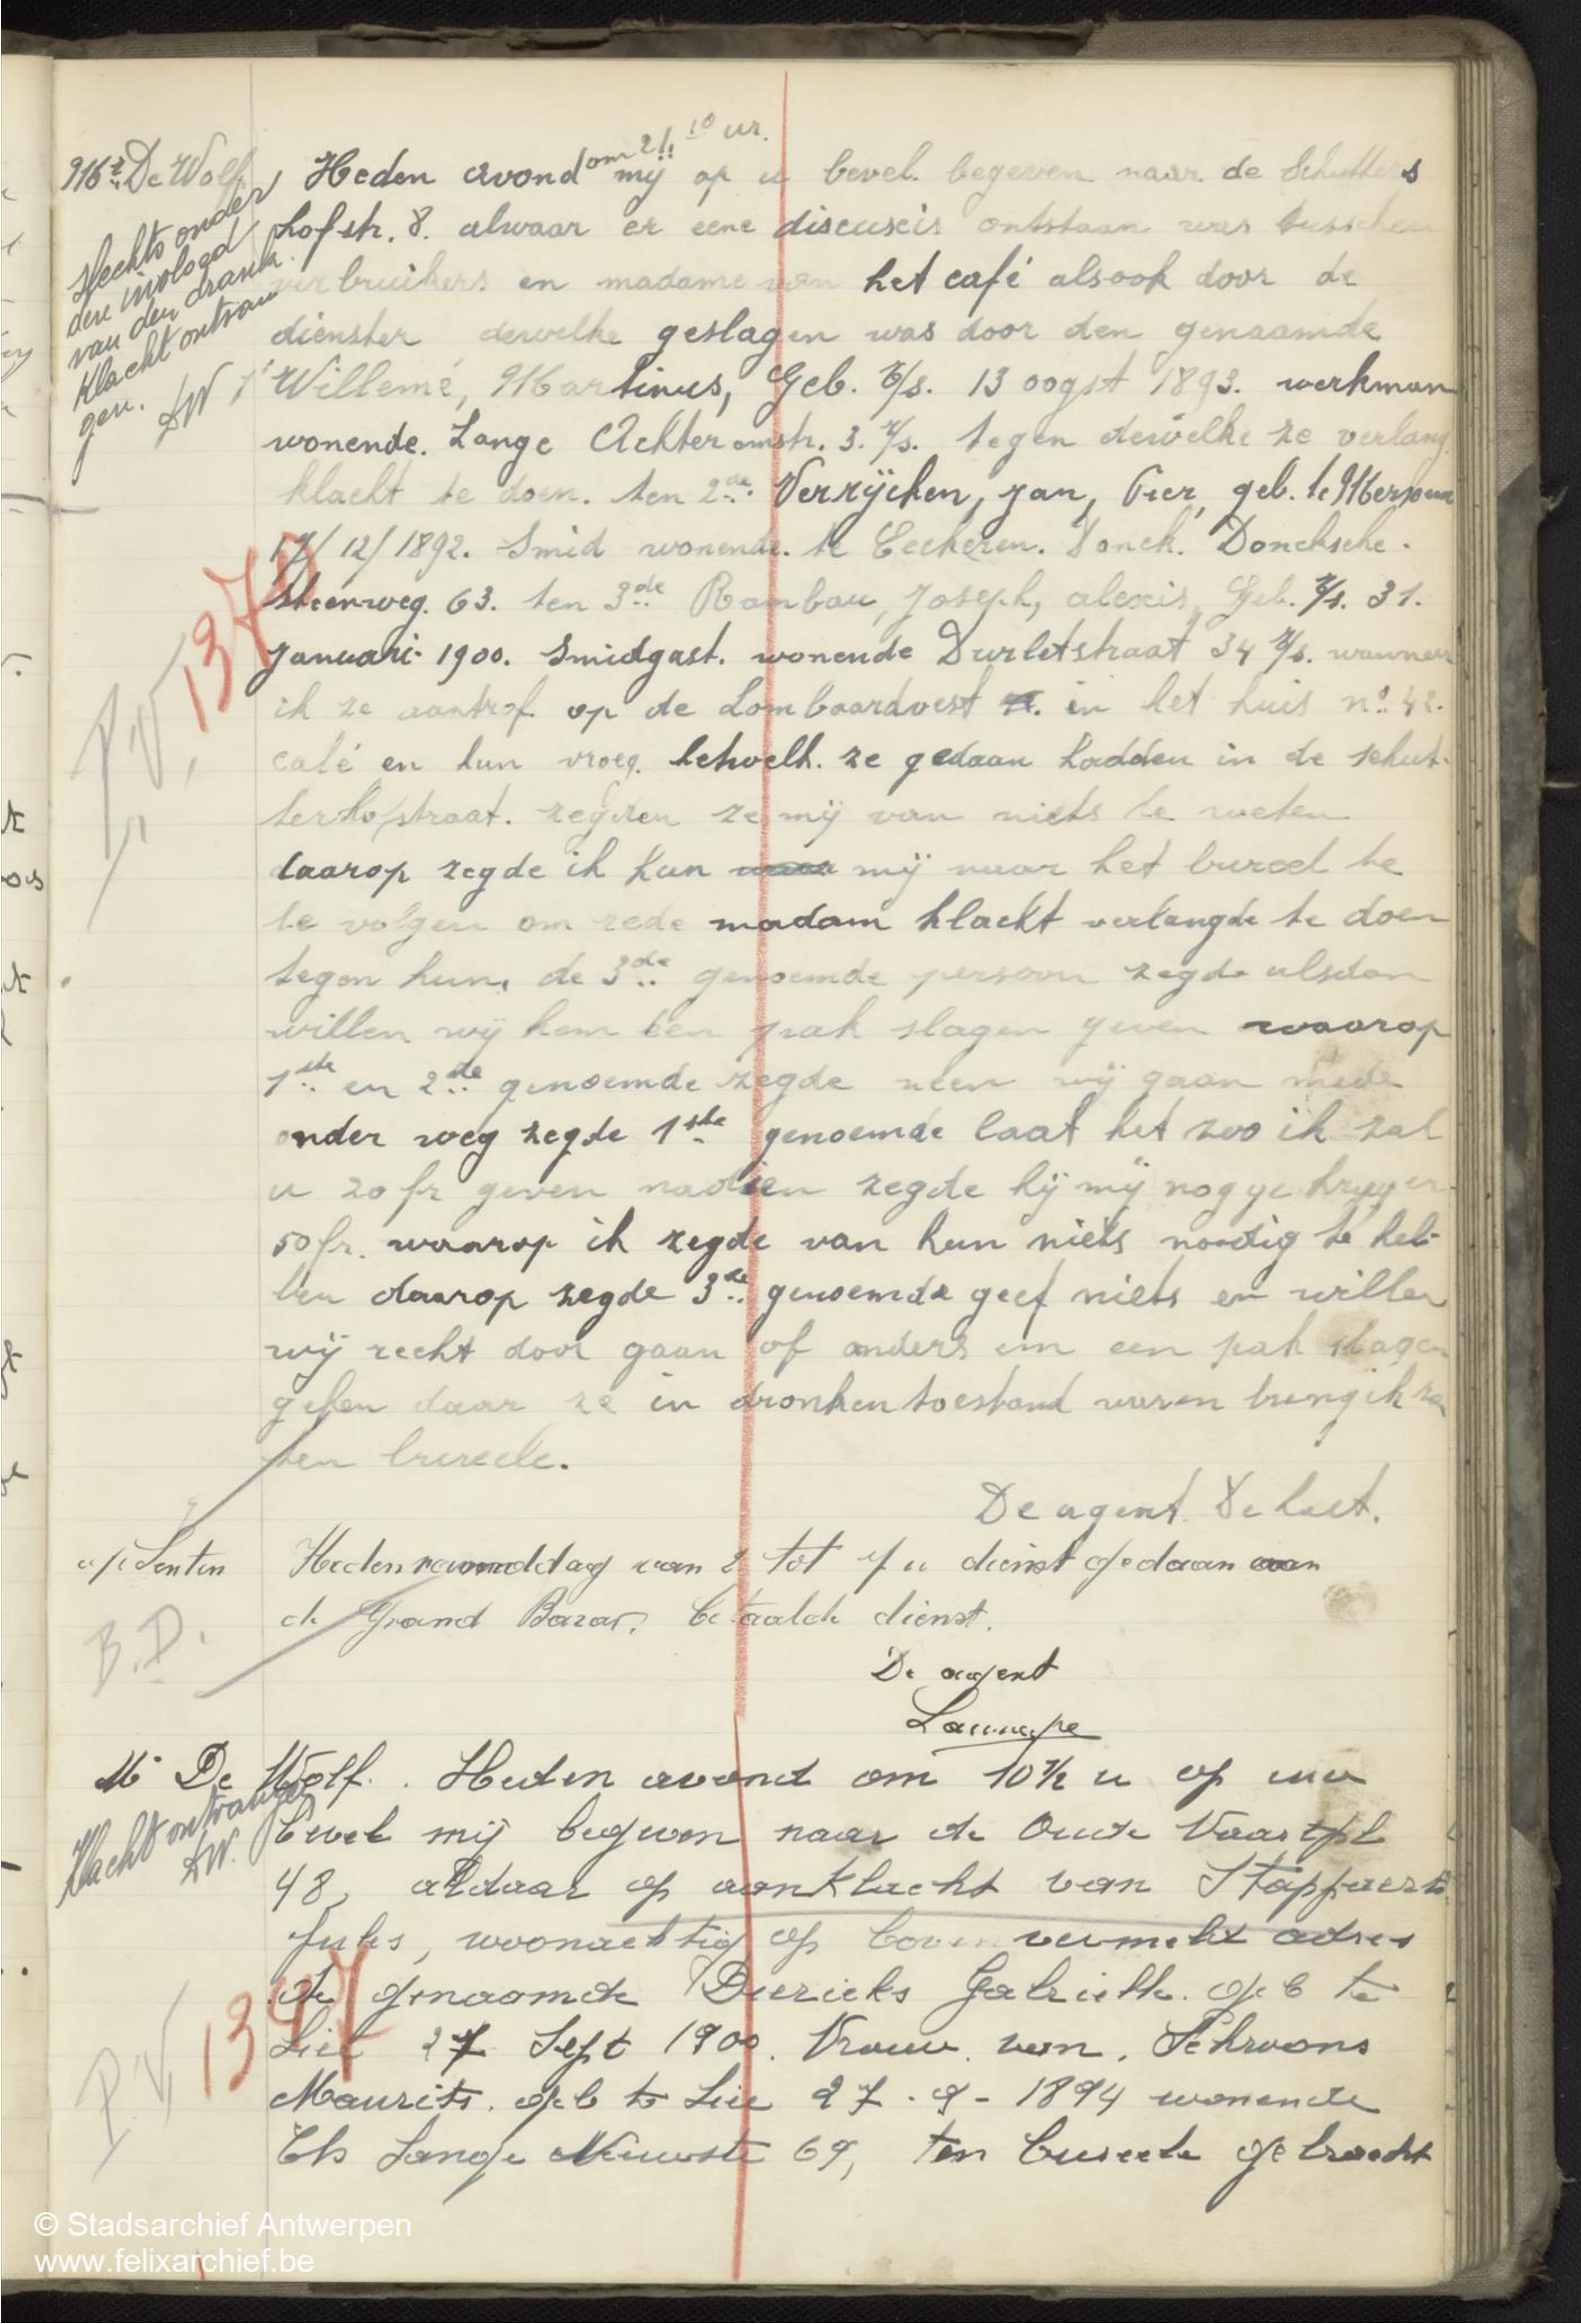 Mr De Wolf
slechts onder
den invloed
van den drank.
Klacht ontvan
gen.
DW
Heden avond om 9 u 10 ur.
mij op u bevel begeven naar de Schutters
hofstr. 8. alwaar er eene discuscis ontstaan was tusschen
verbruikers en madame van het café alsook door de
dienster dewelke geslagen was door den genaamde
1° Willemé, Martinus, Geb. t/s. 13 oogst 1893. werkman
wonende. Lange Achteromstr. 3. t/s. tegen dewelke ze verlang
klacht te doen. ten 2de Verrijcken, Jan, Pier, geb. te Merxem
17/12/1892. Smid wonende. te Eeckeren. Donck. Doncksche.
steenweg. 63. ten 3de Rambau, Joseph, alexis, Geb. t/s. 31.
Januari 1900. Smidgast. wonende Durletstraat 34 t/s. wanneer
ik ze aantrof op de Lombaardvest in het huis no 42.
café en hun vroeg hetwelk ze gedaan hadden in de schut-
tershofstraat. zegden ze mij van niets te weten
daarop zegde ik hun mij naar het bureel te
te volgen om rede madam klacht verlangde te doen
tegen hun, de 3de genoemde persoon zegde alsdan
willen wij hem een pak slagen geven waarop
1ste en 2de genoemde zegde neen wij gaan mede
onder weg zegde 1ste genoemde laat het zoo ik zal
u 20 fr geven nadien zegde hij mij nog ge krijgen
50 fr. waarop ik zegde van hun niets noodig te heb-
ben daarop zegde 3de genoemde geef niets en willen
wij recht door gaan of anders em een pak slagen
gefen daar ze in dronken toestand waren breng ik ze
ten bureele.
P.V. 1370
De agent
a/c Senten
B.D.
Heden namiddag van 2 tot 7 u dienst gedaan aan
de Grand Bazar. betaalde dienst.
De agent
Mr De Wolf. Heden avond om 10½ u op uw
Klacht ontvangen
DW.
bevel mij begeven naar de Oude Vaartpl
48, aldaar op aanklacht van Stappaerts
Jules, woonachtig op bovenvermeld adres
de genaamde Diericks Gabrielle. geb te
Lier 27 Sept 1900. Vrouw van. Schroons
Maurits. geb te Lier 27 - 9 - 1894 wonende
Lange Nieuwstr 69, ten bureele gebracht
P.V. 1371
© Stadsarchief Antwerpen
www.felixarchief.be